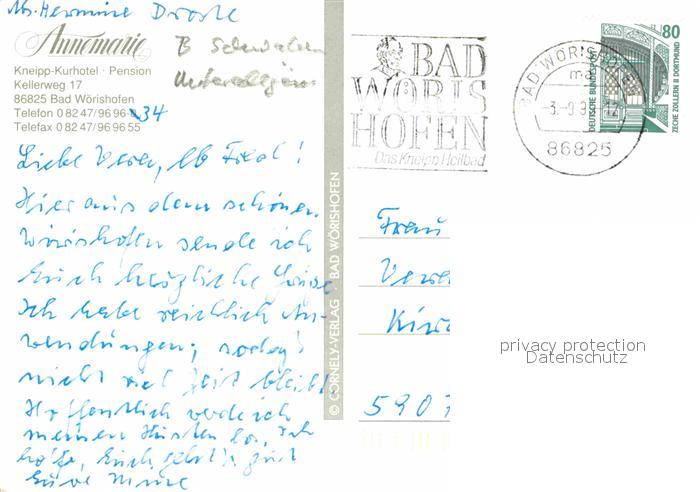 Abs. Hermine Droste
Annemarie
B Schwaben
Unterallgäu
Kneipp-Kurhotel · Pension
Kellerweg 17
86825 Bad Wörishofen
Telefon 0 82 47/96 96-0 34
Telefax 0 82 47/96 96 55
Liebe Vera, lb Fred!
Hier aus dem schönen
Wörishofen sende ich
Euch herzliche Grüße
Ich habe reichlich An-
wendungen, sodaß
nicht viel Zeit bleibt.
Hoffentlich werde ich
meinen Husten los, Ich
hoffe, Euch geht's gut
Eure
© CORNELY-VERLAG · BAD WÖRISHOFEN
BAD
WÖRIS
HOFEN
Das Kneipp Heilbad
BAD WÖRISHOFEN
86825
80
DEUTSCHE BUNDESPOST
ZECHE ZOLLERN II DORTMUND
Frau
Vera
5907
privacy protection
Datenschutz